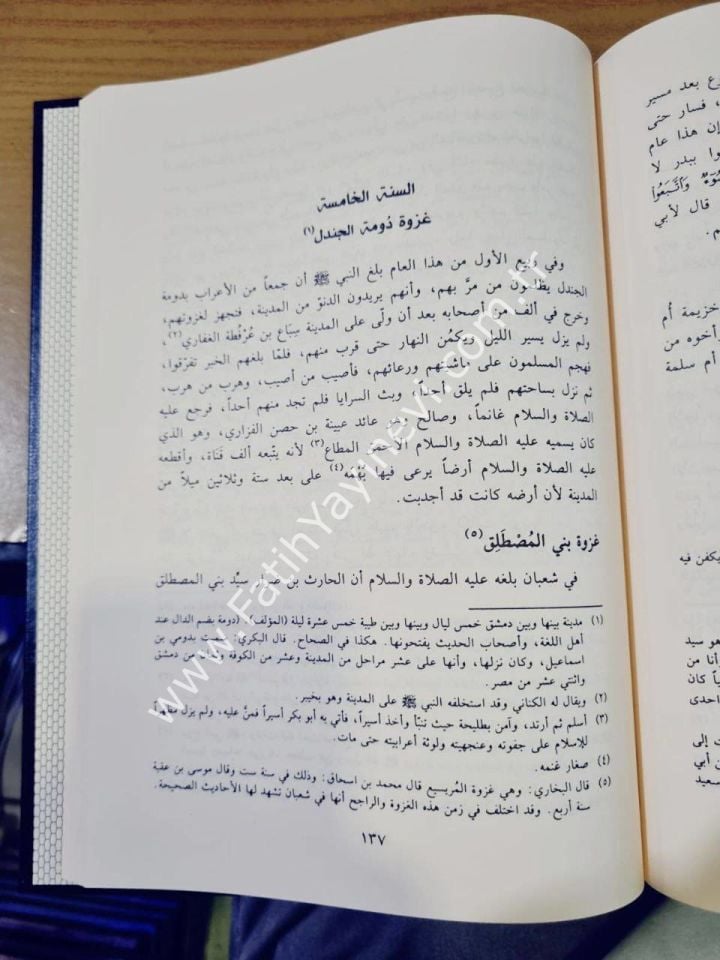 السنة الخامسة
غزوة دُومة الجندل(١)
وفي ربيع الأول من هذا العام بلغ النبي ﷺ أن جمعاً من الأعراب بدومة
الجندل يظلمون من مرَّ بهم، وأنهم يريدون الدنوّ من المدينة، فتجهز لغزوتهم،
وخرج في ألف من أصحابه بعد أن ولّى على المدينة سِبَاع بن عُرْفُطة الغفاري(٢)،
ولم يزل يسير الليل ويكمُن النهار حتى قرب منهم، فلمّا بلغهم الخبر تفرّقوا،
فهجم المسلمون على ماشيتهم ورعائهم، فأصيب من أصيب، وهرب من هرب،
ثم نزل بساحتهم فلم يلق أحداً، وبث السرايا فلم تجد منهم أحداً، فرجع عليه
الصلاة والسلام غانماً، وصالح وهو عائد عيينة بن حصن الفزاري، وهو الذي
كان يسميه عليه الصلاة والسلام الأحمق المطاع(٣) لأنه يتّبعه ألف قَناة، وأقطعه
عليه الصلاة والسلام أرضاً يرعى فيها بَهْمَه(٤) على بعد ستة وثلاثين ميلاً من
المدينة لأن أرضه كانت قد أجدبت.
غزوة بني المُصْطَلِق(٥)
في شعبان بلغه عليه الصلاة والسلام أن الحارث بن ضرار سيِّد بني المصطلق
(١) مدينة بينها وبين دمشق خمس ليال وبينها وبين طيبة خمس عشرة ليلة (المؤلف). (دومة بضم الدال عند
أهل اللغة، وأصحاب الحديث يفتحونها. هكذا في الصحاح. قال البكري: سميت بدومي بن
اسماعيل، وكان نزلها، وأنها على عشر مراحل من المدينة وعشر من الكوفة وثمان من دمشق
واثنتي عشر من مصر.
(٢) ويقال له الكناني وقد استخلفه النبي ﷺ على المدينة وهو بخيبر.
(٣) أسلم ثم أرتد، وآمن بطليحة حيث تنبّأ وأخذ أسيراً، فأتي به أبو بكر أسيراً فمنَّ عليه، ولم يزل مظهراً
للإسلام على جفوته وعنجهيته ولوثة أعرابيته حتى مات.
(٤) صغار غنمه.
(٥) قال البخاري: وهي غزوة المُريسيع قال محمد بن اسحاق: وذلك في سنة ست وقال موسى بن عقبة
سنة أربع. وقد اختلف في زمن هذه الغزوة والراجح أنها في شعبان تشهد لها الأحاديث الصحيحة.
١٣٧
بعد مسير
، فسار حتى
هذا عام
ببدر لا
وَاتَّبَعُوا
قال لأبي
خزيمة أم
وأخوه من
أم سلمة
يكفن فيه
هو سيد
وأنا من
كان
احدى
إلى
أبي
سعيد
www.FatihYayinevi.com.tr